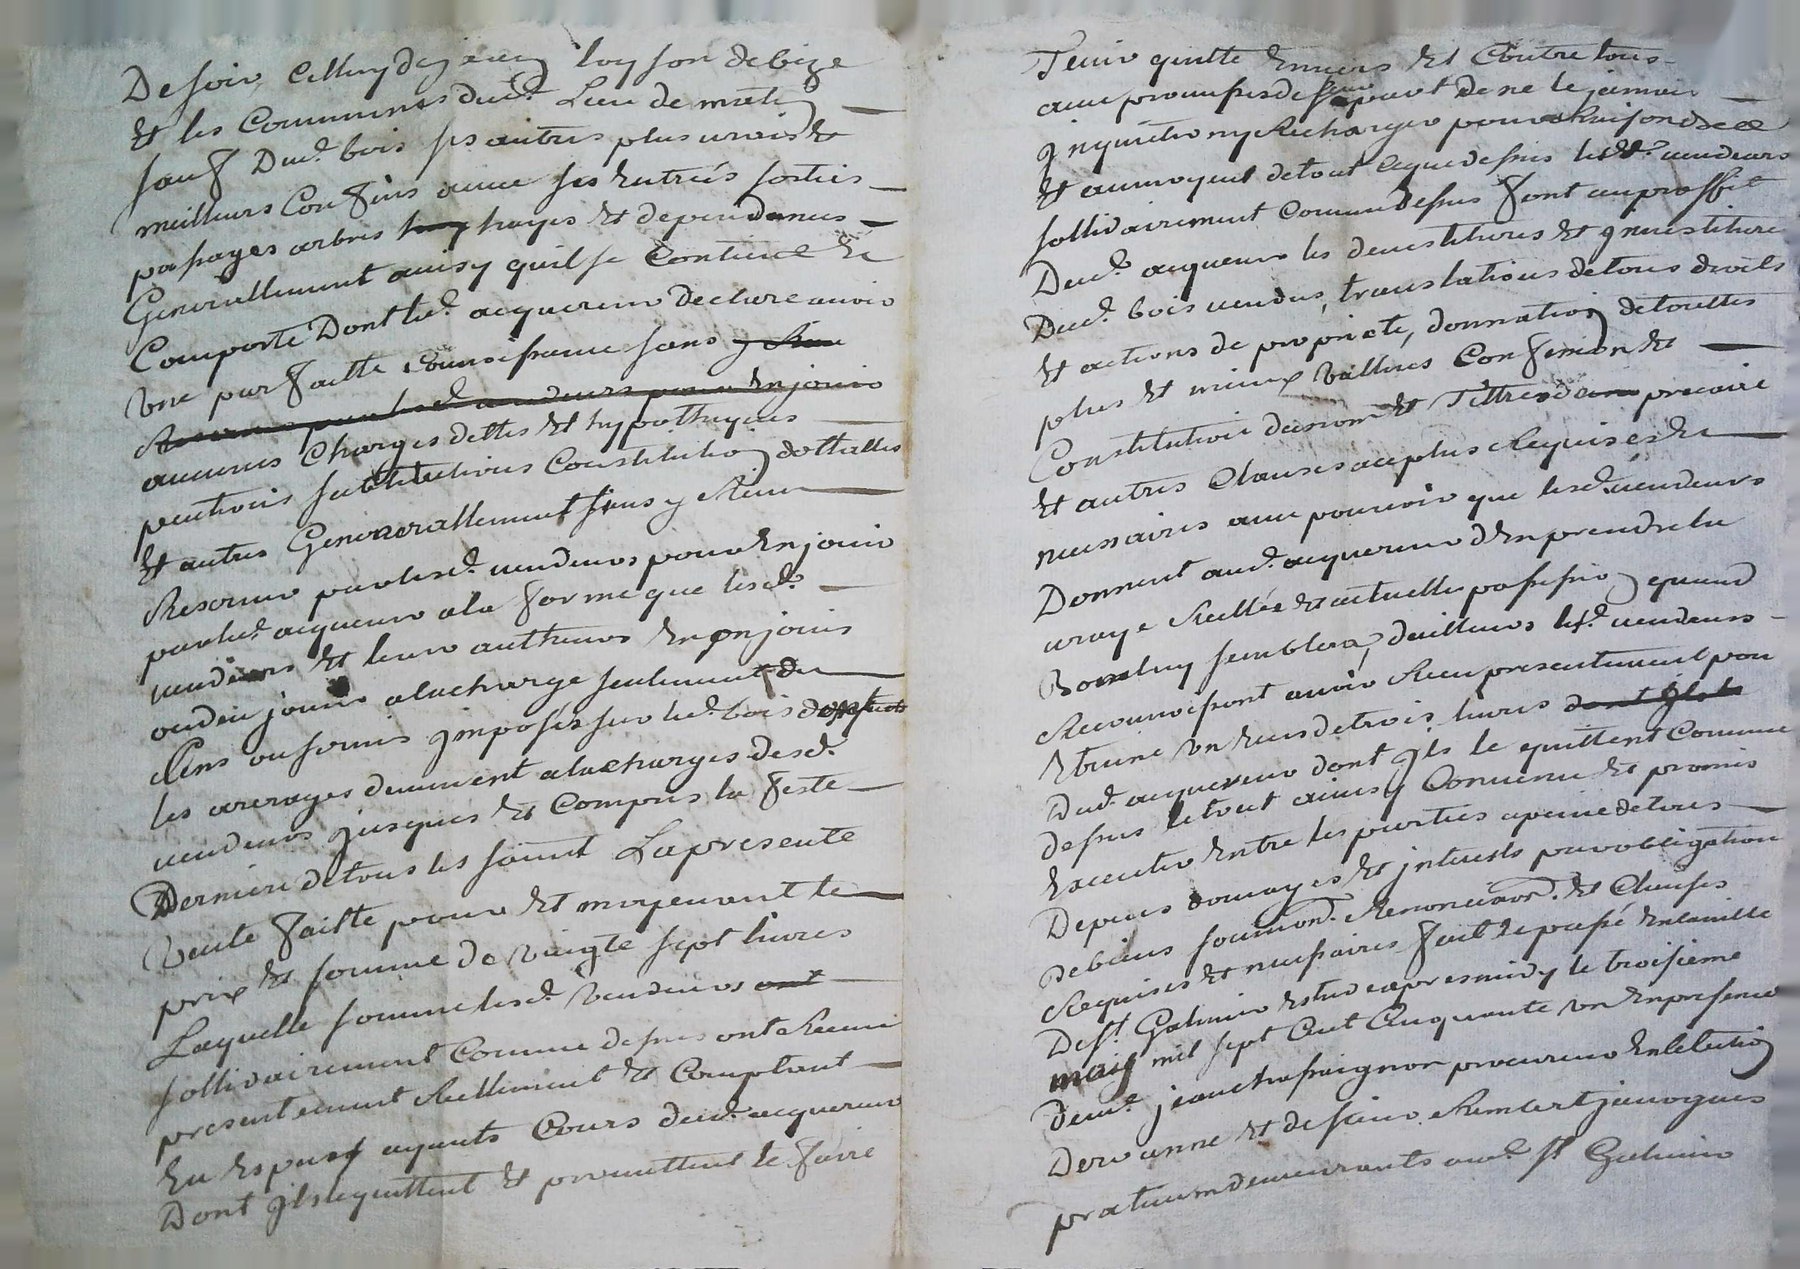 De soir, Celluy de jean loyson de bize
Et les Communes dud. Lieu de matin
sauf Dud. bois ses autres plus vrais Et
meilleurs Confins avec ses Entrées sorties
passages arbres hayes Et dependances
Generallement ainsy quil se Contient Et
Comporte Dont led. acquereur declare avoir
Une parfaitte connoissance sans y Rien
Reserver par lesd. vendeurs pour En jouir
aucunes Charges dettes Et hypotheques
pentions substitutions Constitution dottalles
Et autres Generallement sans y Rien
Reserver par lesd. vendeurs pour En jouir
par led. acquereur a la forme que lesd.
vendeurs Et leurs autheurs En ont jouis
ou deu jouir a la charge seulement du
Cens ou servis jmposés sur led. bois
les arerages demeurent a la charges desd.
vendeurs jusques Et Compris la feste
Derniere de tous les saint La presente
Vente faitte pour Et moyenant le
prix Et somme de Vingte sept livres
Laquelle somme lesd. Vendeurs ont
sollidairement Comme dessus ont Receu
presentement Reellement Et Comptant
En Espece ayants Cours dud. acquereur
Dont jls le quittent Et promettent le faire
Tenir quitte Envers Et Contre tous
avec promesses de sa part de ne le jamais
jnquieter ny Rechercher pour Raison de ce
Et au moyent de tout ce que dessus lesd. vendeurs
sollidairement Comme dessus font au proffit
Dud. acquereur les devestitures Et jnvestiture
Dud. bois vendus, translations de tous droits
Et actions de proprieté, donnation de touttes
plus Et mieux Vallues Confession Et
Constitution de nom Et Tittre de precaire
Et autres Clauses au plus Requises Et
necessaires avec pouvoir que lesd. vendeurs
Donnent aud. acquereur d'En prendre la
vraye Reelle Et actuelle possession quand
Bon luy semblera, dailleurs lesd. vendeurs
Reconnoissent avoir Receu presentement pour
Etreine Un Ecus de trois livres dont jls le
Dud. acquereur dont jls le quittent Comme
dessus le tout ainsy Convenu Et promis
Executer Entre les parties a peine de tous
Depens domages Et jnterests par obligation
De biens soumion. Renonciaon. Et Clauses
Requises Et necessaires fait Et passé En la ville
De st. Galmier Estude apres midy le troisieme
may mil sept Cent Cinquante un En presence
de me. jean chassaignon procureur En lelection
De roanne Et de sieur Rambert janvogues
praticien demeurants aud. st. Galmier